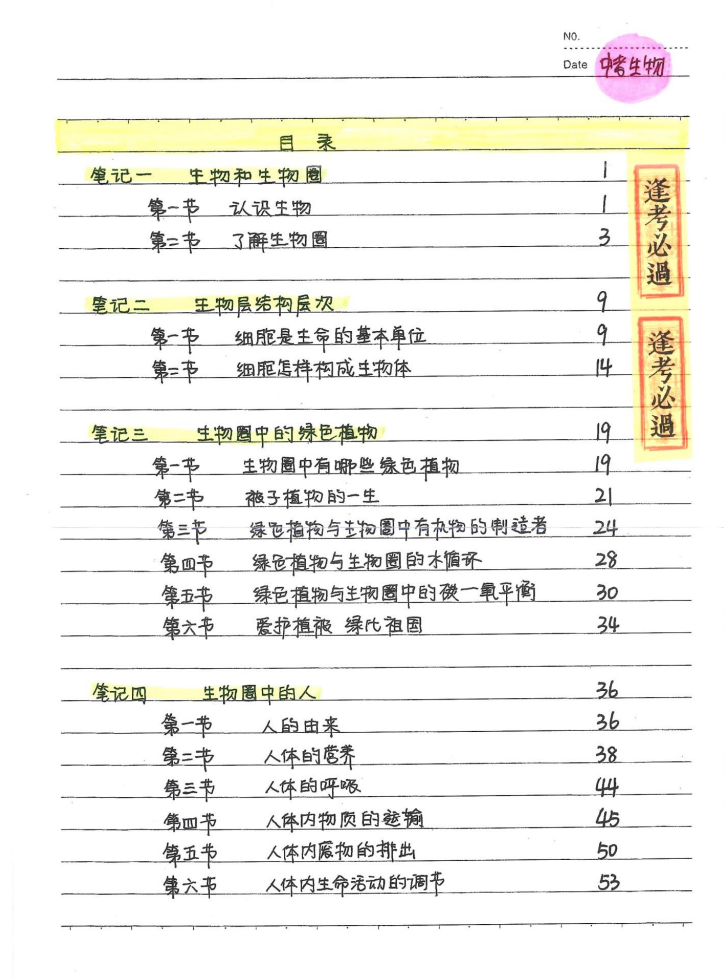 NO.
Date 中考生物
目录
笔记一 生物和生物圈 1
第一节 认识生物 1
第二节 了解生物圈 3
笔记二 生物层结构层次 9
第一节 细胞是生命的基本单位 9
第二节 细胞怎样构成生物体 14
笔记三 生物圈中的绿色植物 19
第一节 生物圈中有哪些绿色植物 19
第二节 被子植物的一生 21
第三节 绿色植物与生物圈中有机物的制造者 24
第四节 绿色植物与生物圈的水循环 28
第五节 绿色植物与生物圈中的碳一氧平衡 30
第六节 爱护植被 绿化祖国 34
笔记四 生物圈中的人 36
第一节 人的由来 36
第二节 人体的营养 38
第三节 人体的呼吸 44
第四节 人体内物质的运输 45
第五节 人体内废物的排出 50
第六节 人体内生命活动的调节 53
逢考必過
逢考必過